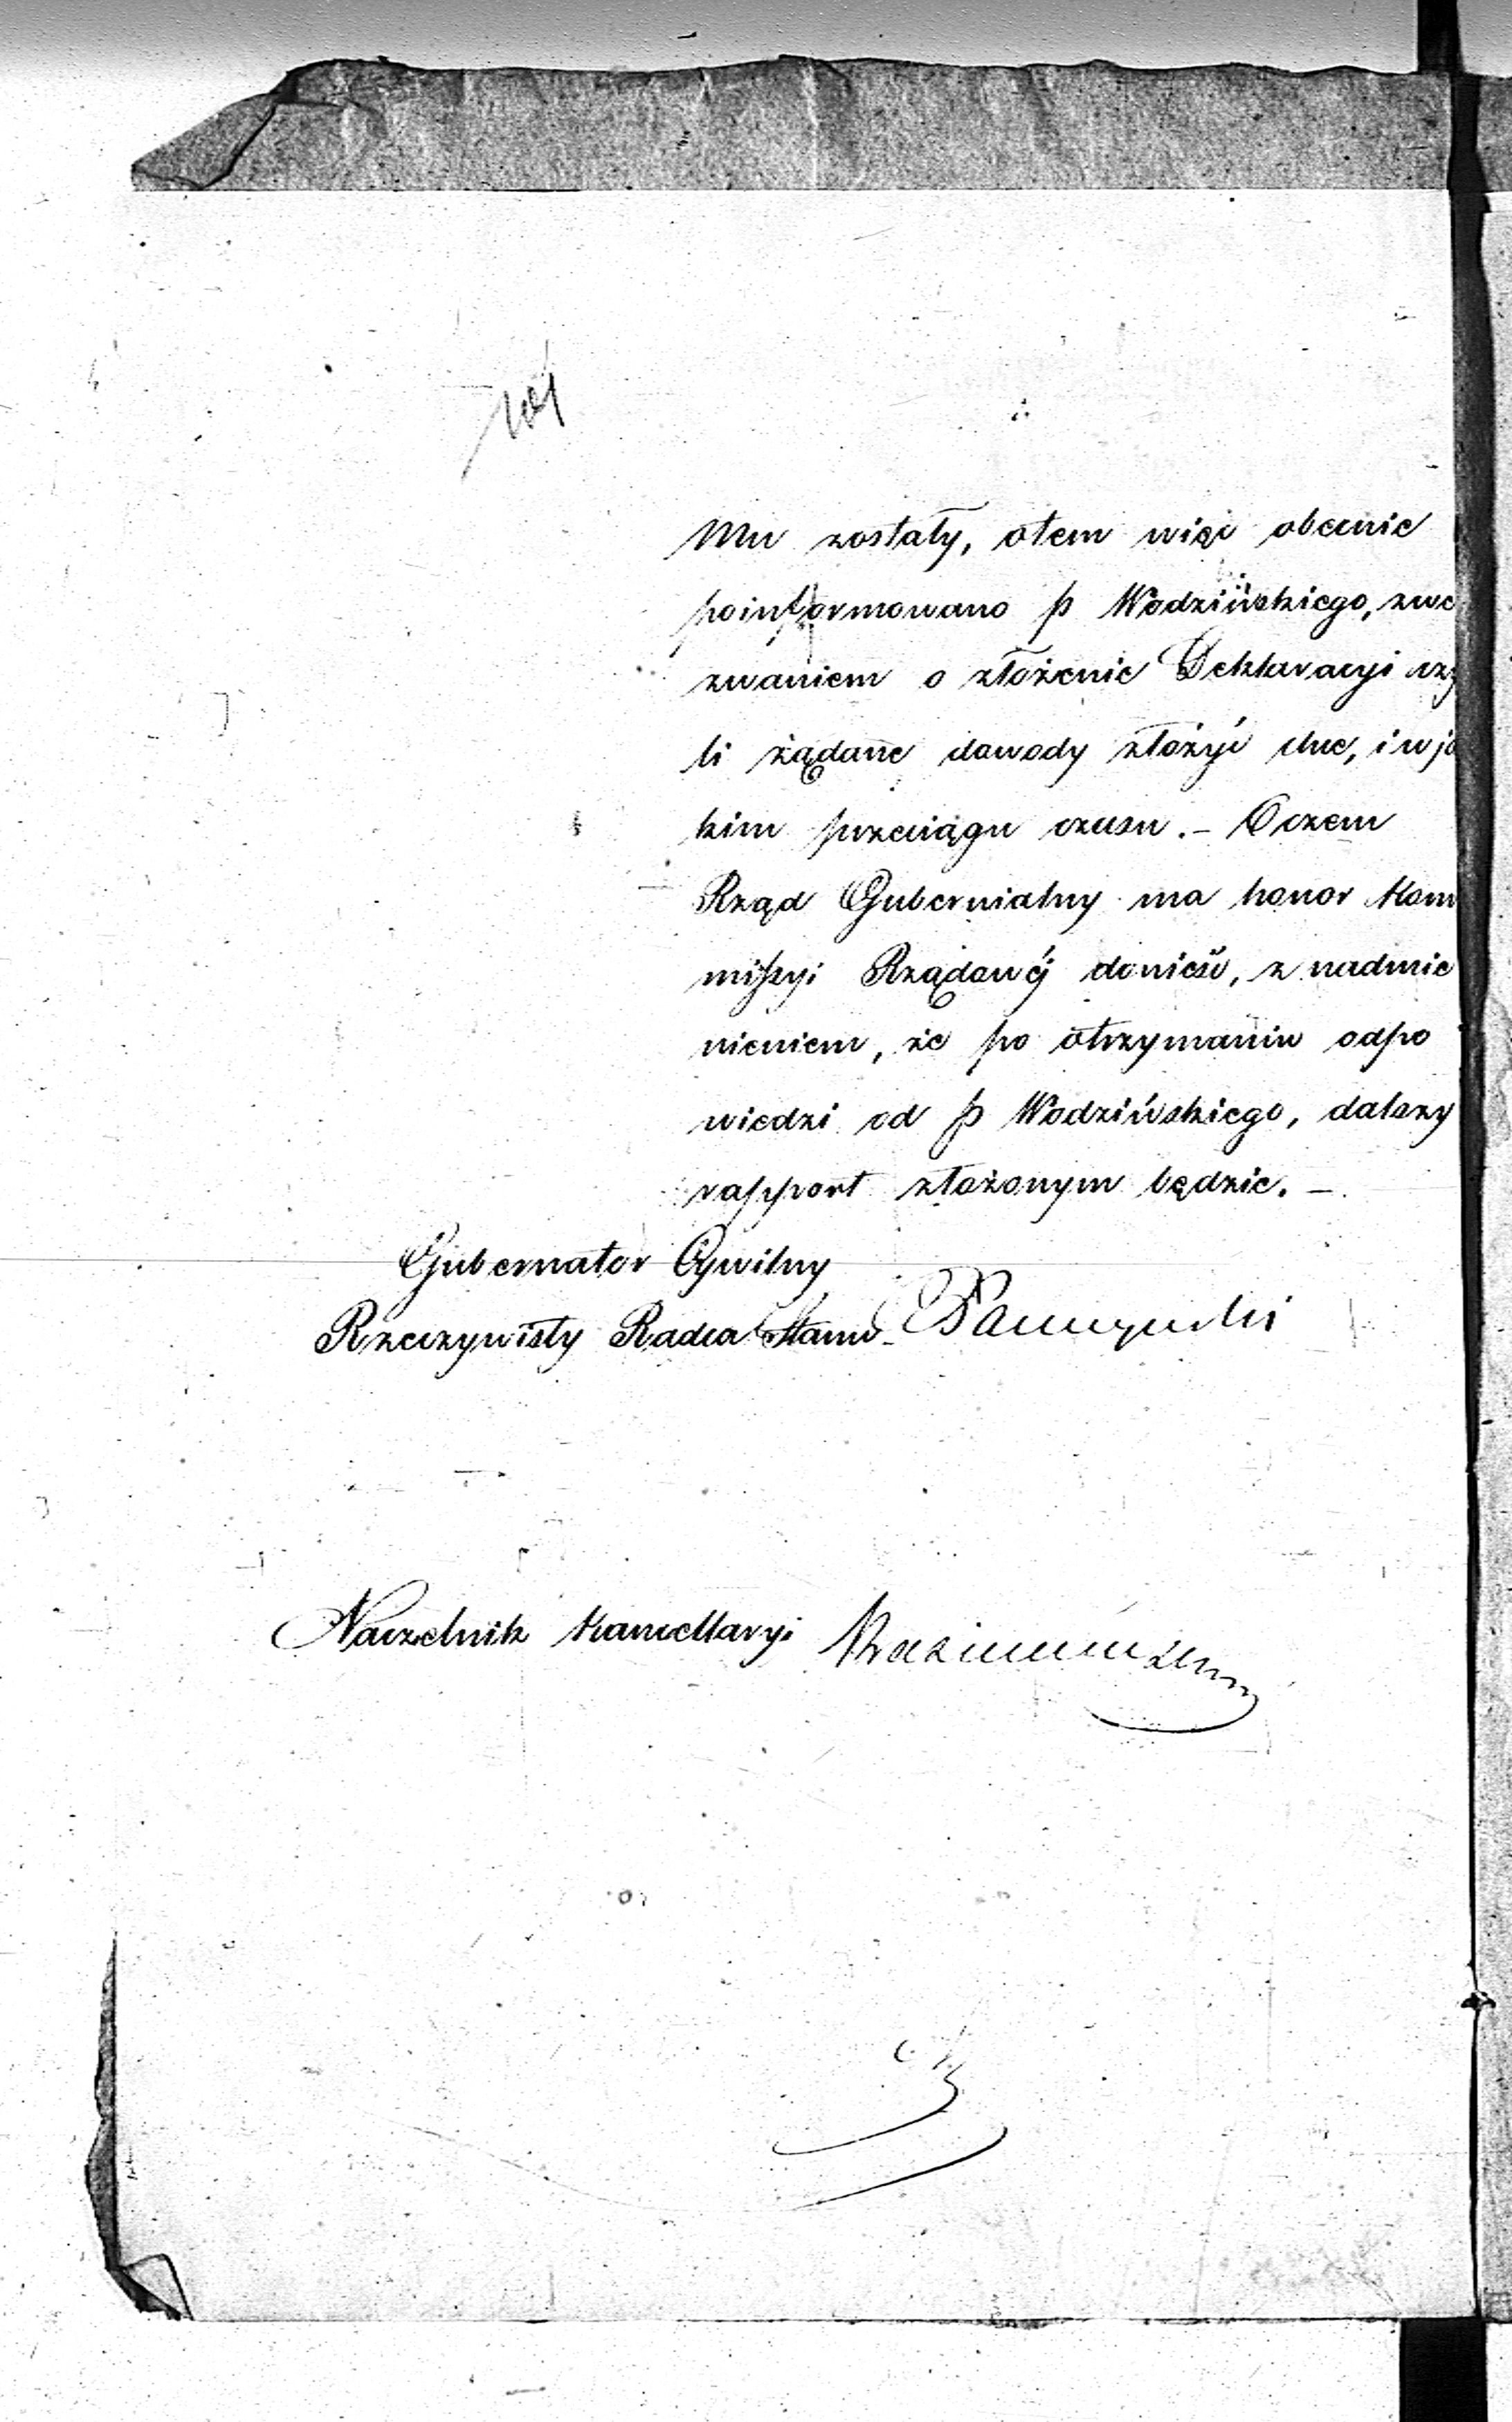 Mu zostały, otem więc obecnie
poinformowano p Wodzińskiego, zwe
zwaniem o złożenie Deklaracyi czy
li żądane dowody złożyć chce, i w ja
kim przeciągu czasu. – O czem
Rząd Gubernialny ma honor Kom
missyi Rządowéj donieść, z nadmie
nieniem, że po otrzymaniu odpo
wiedzi od p Wodzińskiego, dalszy
rapport złożonym będzie. –
Gubernator Cywilny
Rzeczywisty Radca Stanu
Naczelnik Kancellaryi